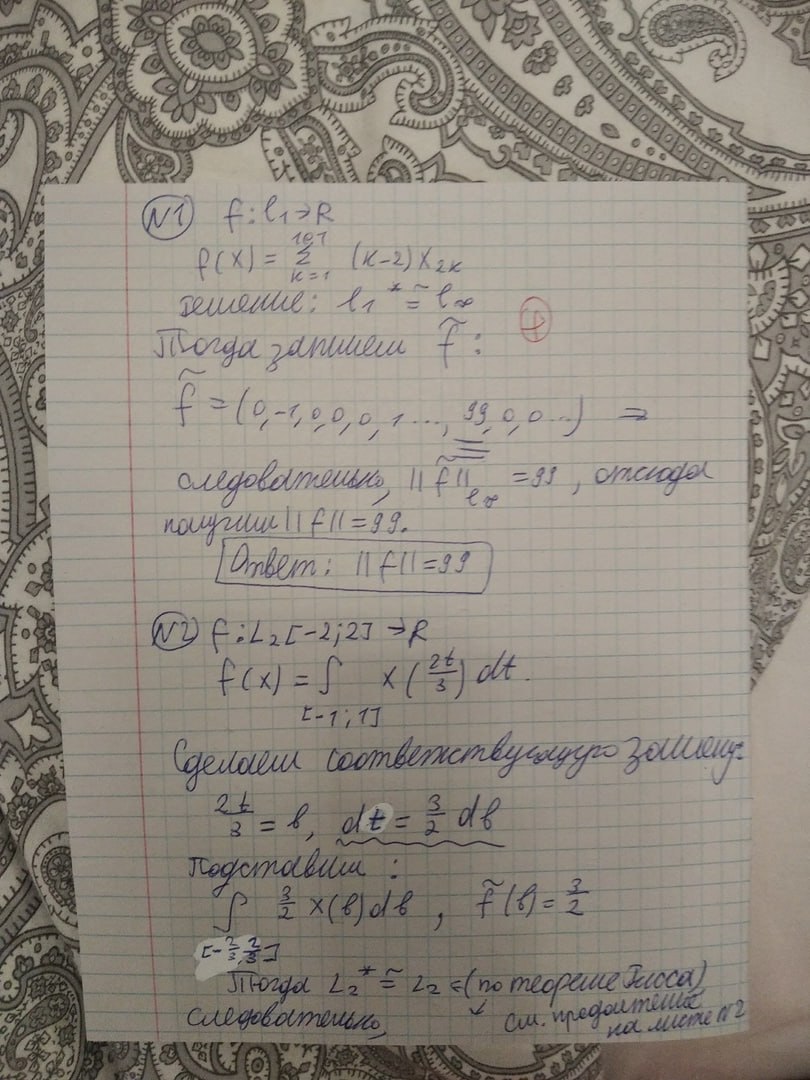 N1 f: l₁→R
f(x) = Σ_{k=1}^{101} (k-2) x_{2k}
Решение: l₁* ≅ l∞
Тогда запишем f̃:
f̃ = (0, -1, 0, 0, 0, 1 ..., 99, 0, 0...) ⇒
следовательно, ||f̃||_{l∞} = 99, отсюда
получим ||f|| = 99.
Ответ: ||f|| = 99
N2 f: L₂[-2;2] → R
f(x) = ∫_{[-1;1]} x(2t/3) dt.
Сделаем соответствующую замену:
2t/3 = b, dt = 3/2 db
Подставим:
∫_{[-2/3; 2/3]} 3/2 x(b) db, f̃(b) = 3/2
Тогда L₂* ≅ L₂ (по теореме Рисса)
следовательно,
см. продолжение
на листе N2